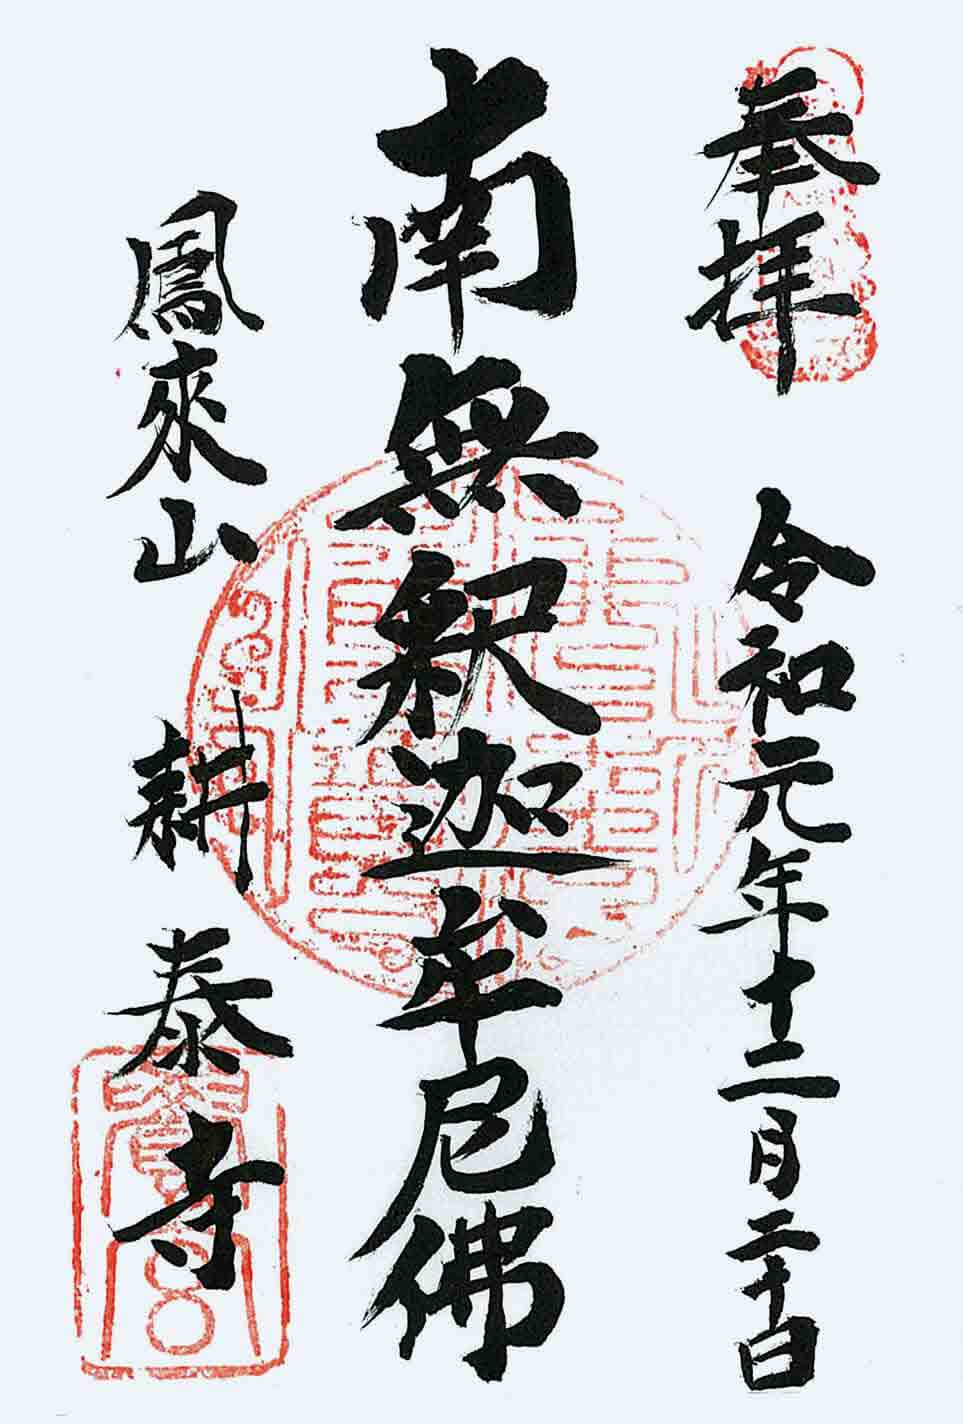 奉拝
令和元年十二月二十日
南無釈迦牟尼佛
鳳來山
耕泰寺